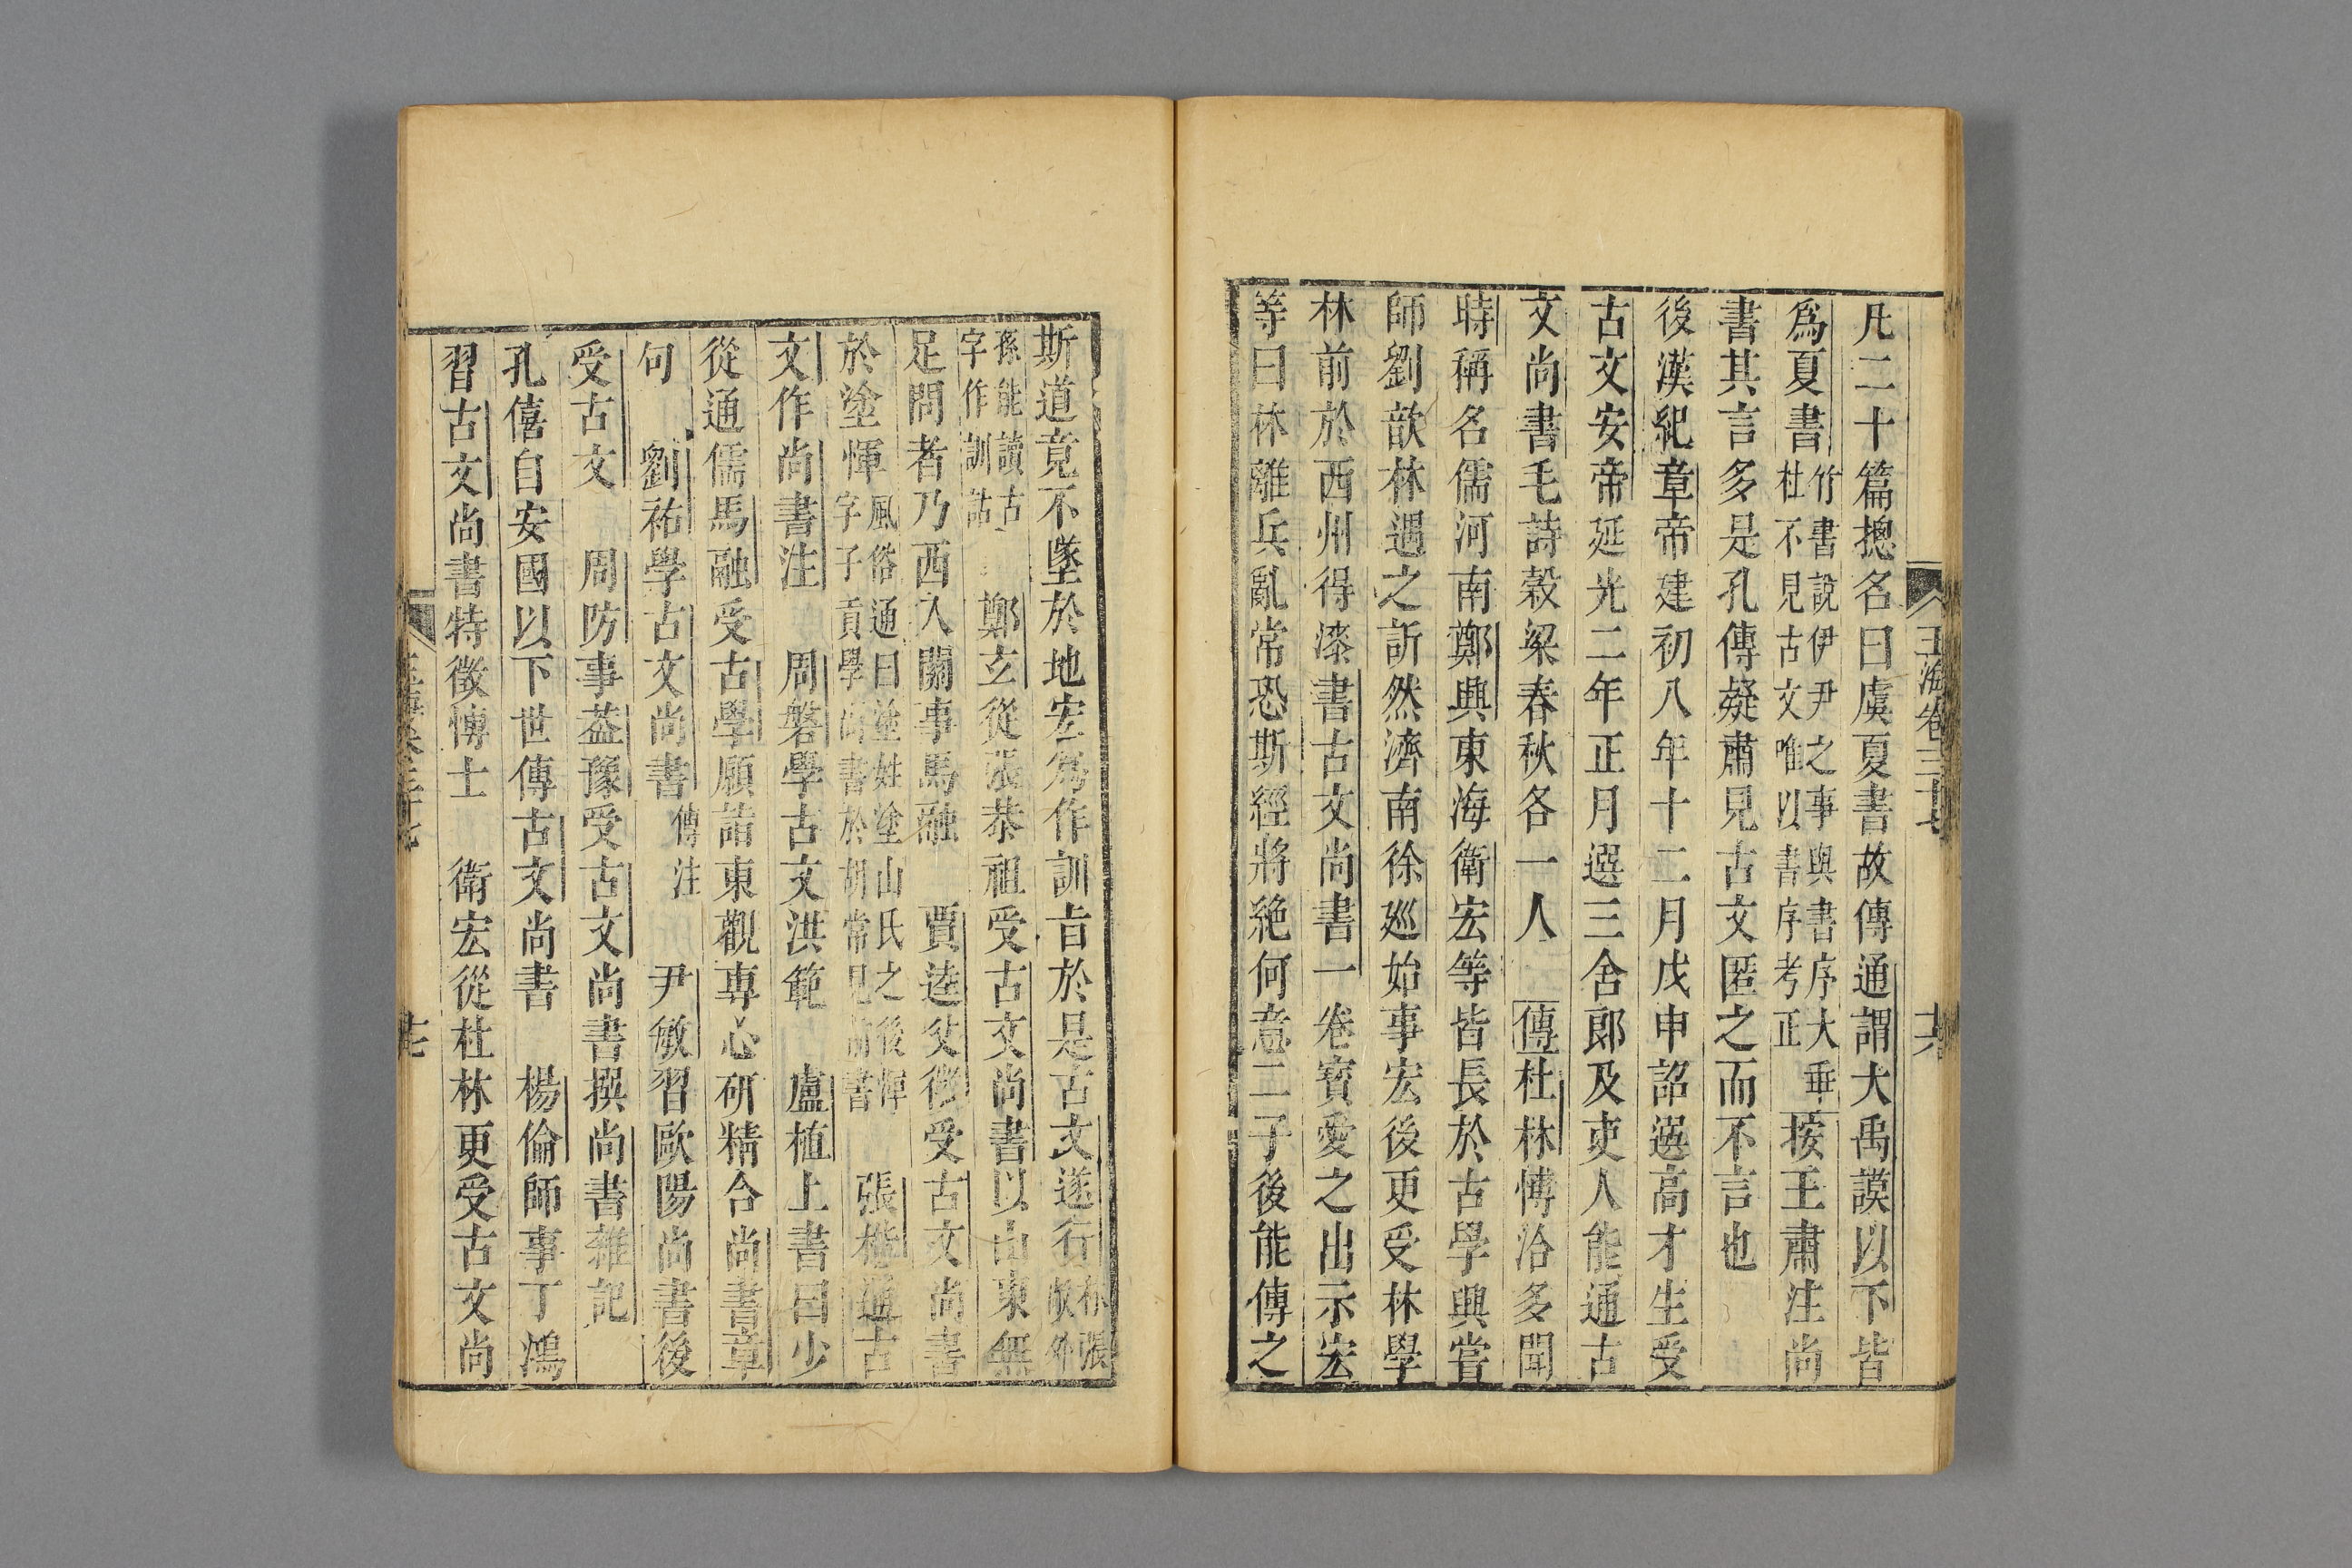 玉海卷三十七
凡二十篇揔名曰虞夏書故傳通謂大禹謨以下皆
爲夏書竹書說伊尹之事與書序大垂
杜不見古文唯以書序考正按王肅注尚
書其言多是孔傳疑肅見古文匿之而不言也
後漢紀章帝建初八年十二月戊申詔選高才生受
古文安帝延光二年正月選三舍郎及吏人能通古
文尚書毛詩榖梁春秋各一人 傳杜林博洽多聞
時稱名儒河南鄭興東海衛宏等皆長於古學興嘗
師劉歆林遇之訢然濟南徐廵始事宏後更受林學
林前於西州得漆書古文尚書一卷寳愛之出示宏
等曰林離兵亂常恐斯經將絶何意二子後能傳之
斯道竟不墜於地宏爲作訓㫖於是古文遂行林張
敞外
孫能讀古
字作訓詁 鄭玄從張恭祖受古文尚書以山東無
足問者乃西入關事馬融 賈逵父徽受古文尚書
於塗惲風俗通曰塗姓塗山氏之後惲
字子貢學尚書於胡常見前書 張楷通古
文作尚書注 周磐學古文洪範 盧植上書曰少
從通儒馬融受古學願詣東觀專心研精合尚書章
句 劉祐學古文尚書傳注 尹敏習歐陽尚書後
受古文 周防事蓋豫受古文尚書撰尚書雜記
孔僖自安國以下世傳古文尚書 楊倫師事丁鴻
習古文尚書特徵博士 衛宏從杜林更受古文尚